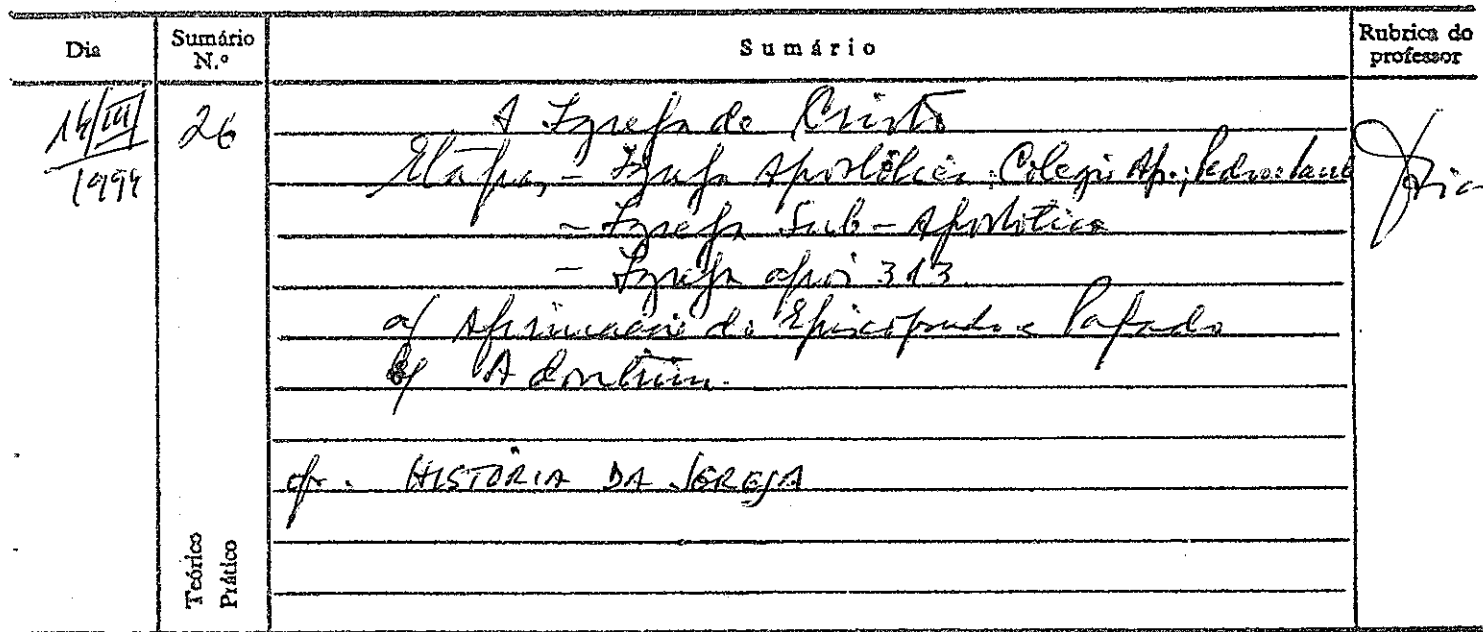 Dia
Sumário N.º
Sumário
Rubrica do professor
14/III/1994
26
A Igreja de Cristo
Etapas - Igreja Apostólica: Colégio Ap.; Pedro e Paulo
- Igreja Sub-Apostólica
- Igreja após 313.
a) Afirmação do Episcopado e Papado
b) A doutrina.
cfr. HISTÓRIA DA IGREJA
Teórico
Prático